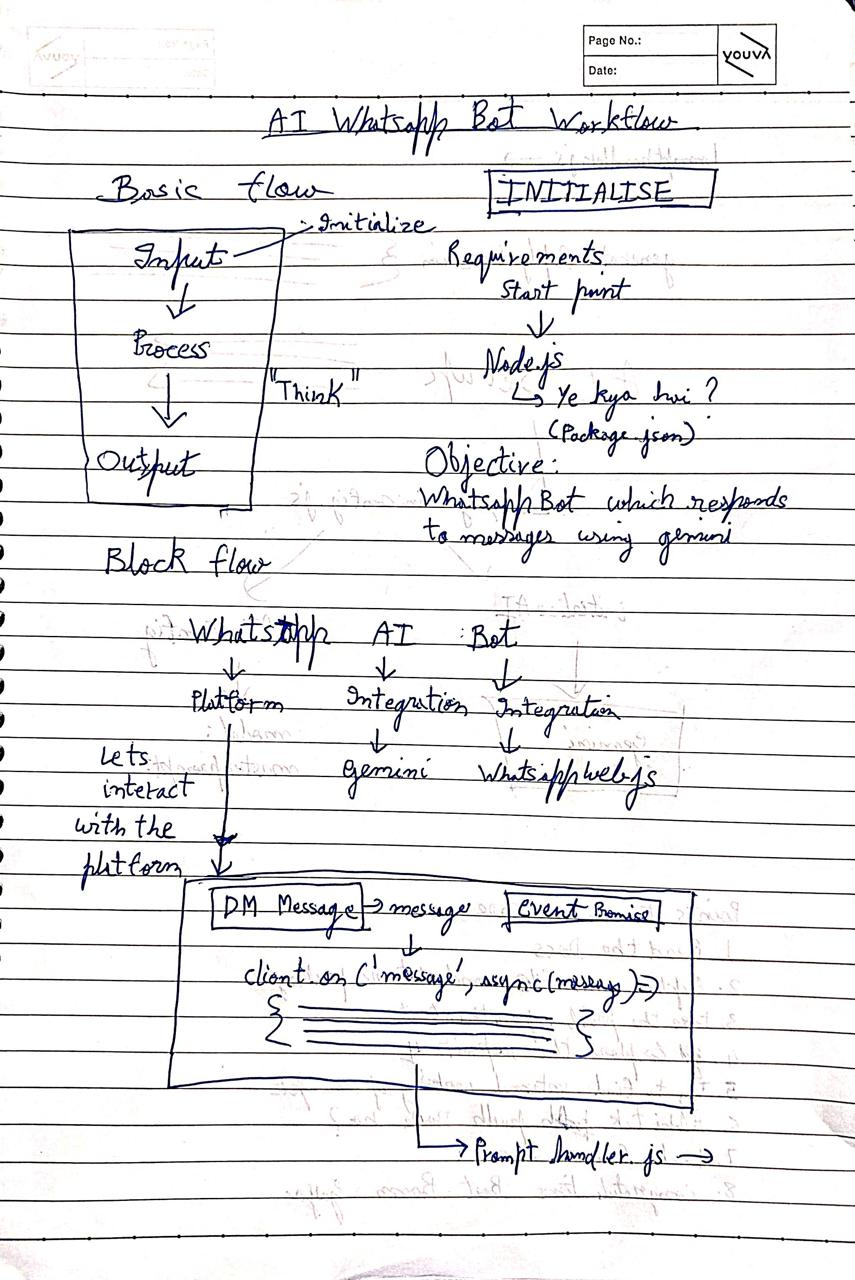 Page No.:
Date:
YOUVA
AI Whatsapp Bot Workflow
Basic flow
Initialize
Input
↓
Process
↓
"Think"
Output
INITIALISE
Requirements
Start point
↓
Node.js
↳ Ye kya hai ?
(Package.json)
Objective:
Whatsapp Bot which responds
to messages using gemini
Block flow
Whatsapp AI Bot
↓ ↓ ↓
Platform Integration Integration
↓ ↓
gemini Whatsappweb.js
Lets
interact
with the
platform
DM Message → message Event Promise
↓
client.on ('message', async (message) =>
{ }
→ Prompt handler.js →